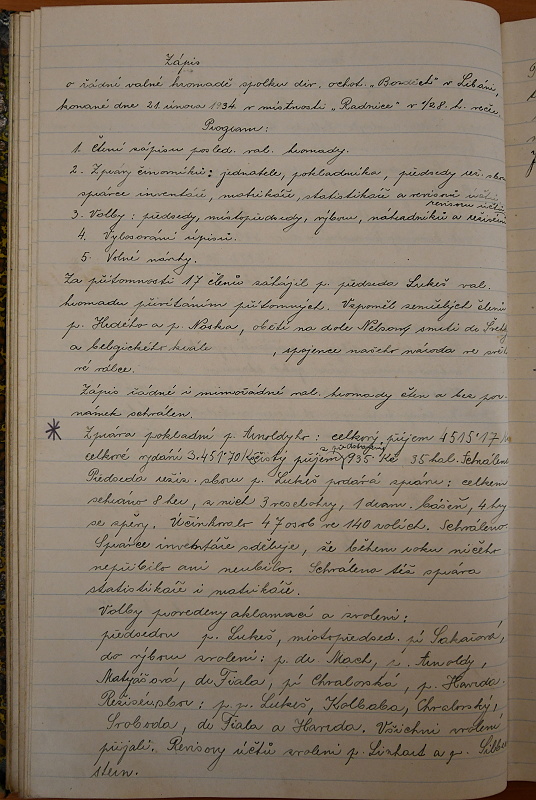 Zápis
o řádné valné hromadě spolku div. ochot. „Bozděch" v Libáni,
konané dne 21. února 1934 v místnosti „Radnice" v 1/2 8. h. več.
Program:
1. Čtení zápisu posled. val. hromady.
2. Zprávy činovníků: jednatele, pokladníka, předsedy rež. sboru
správce inventáře, matrikáře, statistikáře a revisorů účtů
revisorů účtů
3. Volby: předsedy, místopředsedy, výboru, náhradníků a
4. Vylosování úpisů.
5. Volné návrhy.
Za přítomnosti 17 členů zahájil p. předseda Lukeš val.
hromadu přivítáním přítomných. Vzpoměl zemřelých členů
p. Hrdého a p. Noska, obětí na dole Nelson, smrti dr Švehly
a belgického krále , spojence našeho národa ve svět
ré válce.
Zápis řádné i mimořádné val. hromady čten a bez poz-
námek schválen.
* Zpráva pokladní p. Arnoldyho: celkový příjem 4515·17 Kč
celkové vydání 3.451·70 Kč čistý příjem 935 Kč 35 hal. Schválena
Předseda režis. sboru p. Lukeš podává zprávu: celkem
sehráno 8 her, z nich 3 veselohry, 1 dram. báseň, 4 hry
se zpěvy. Účinkovalo 47 osob ve 140 rolích. Schváleno
Správce inventáře sděluje, že během roku ničeho
nepřibylo ani neubylo. Schválena též zpráva
statistikáře i matrikáře.
Volby provedeny aklamací a zvoleni:
předsedou p. Lukeš, místopředsed. pí Sakařová,
do výboru zvoleni: p. dr Mach, p. Arnoldy,
Matyášová, dr Fiala, pí Chvalovská, p. Havrda.
Režiséry sboru: p.p. Lukeš, Kolbaba, Chvalovský,
Svoboda, dr Fiala a Havrda. Všichni volení
přijali. Revisory účtů zvoleni p. Linhart a p. Silber
stein.